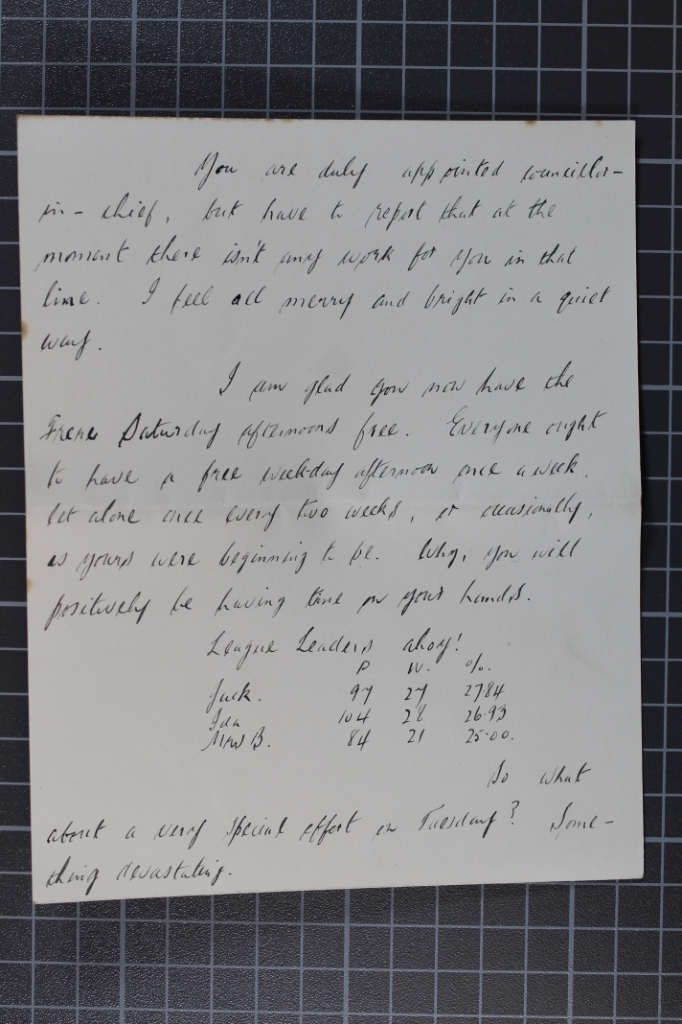 You are duly appointed councillor-
in-chief, but have to report that at the
moment there isn't any work for you in that
line. I feel all merry and bright in a quiet
way.
I am glad you now have the
Saturday afternoons free. Everyone ought
to have a free weekday afternoon once a week,
let alone once every two weeks, or occasionally,
as yours were beginning to be. Why, you will
positively be having time on your hands.
League Leaders ahoy!
P W. %.
Jack. 97 27 27.84
Ida 104 28 26.93
Mrs B. 84 21 25.00.
So what
about a very special effort on Tuesday? Some-
thing devastating.